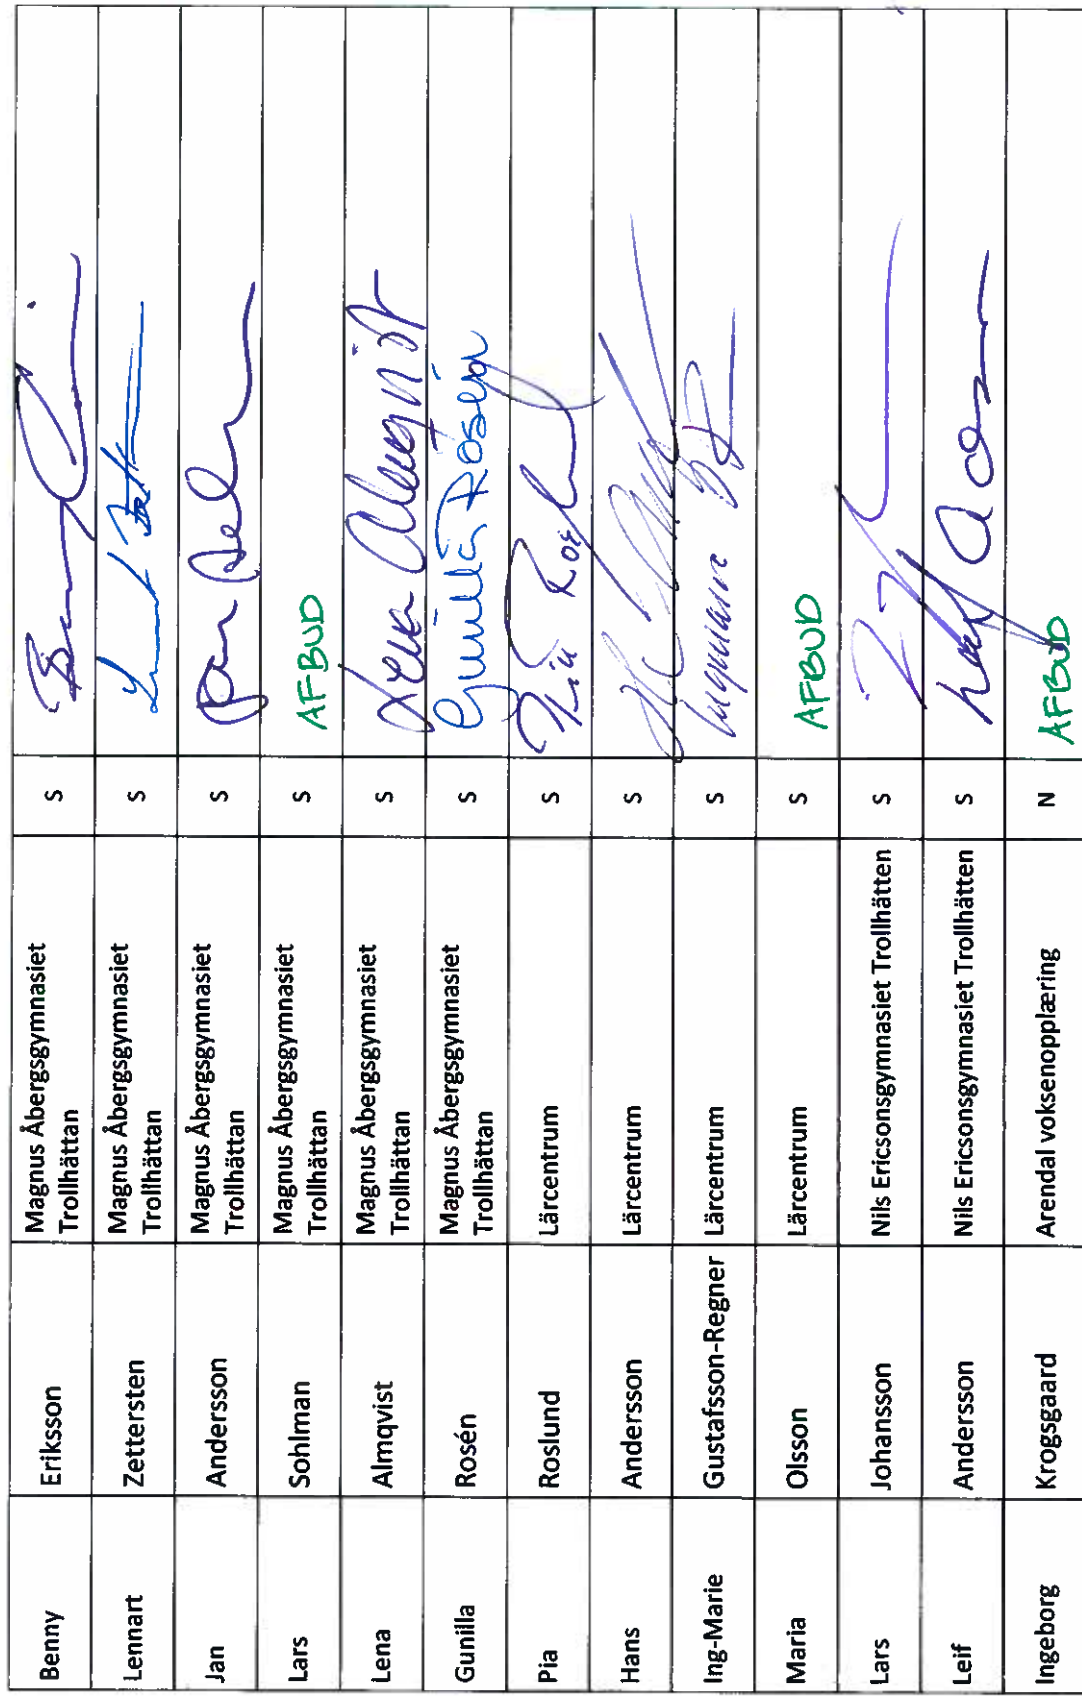 Benny Eriksson Magnus Åbergsgymnasiet S
Trollhättan
Lennart Zettersten Magnus Åbergsgymnasiet S
Trollhättan
Jan Andersson Magnus Åbergsgymnasiet S
Trollhättan
Lars Sohlman Magnus Åbergsgymnasiet S AFBUD
Trollhättan
Lena Almqvist Magnus Åbergsgymnasiet S Lena Almqvist
Trollhättan
Gunilla Rosén Magnus Åbergsgymnasiet S Gunilla Rosén
Trollhättan
Pia Roslund Lärcentrum S Pia
Hans Andersson Lärcentrum S
Ing-Marie Gustafsson-Regner Lärcentrum S
Maria Olsson Lärcentrum S AFBUD
Lars Johansson Nils Ericsonsgymnasiet Trollhätten S
Leif Andersson Nils Ericsonsgymnasiet Trollhätten S
Ingeborg Krogsgaard Arendal voksenopplæring N AFBUD